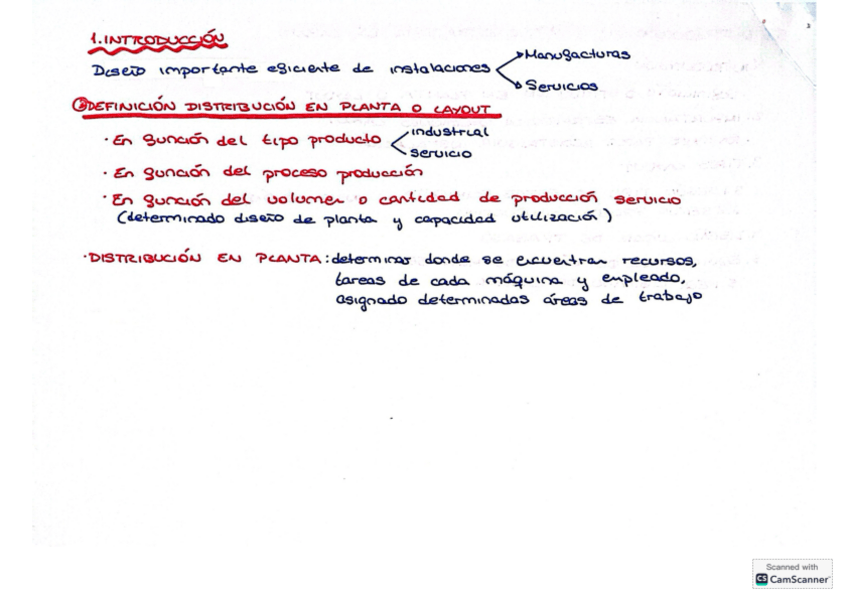 1. INTRODUCCIÓN
Diseño importante eficiente de instalaciones
Manufacturas
Servicios
2 DEFINICIÓN DISTRIBUCIÓN EN PLANTA O LAYOUT
· En función del tipo producto
industrial
servicio
· En función del proceso producción
· En función del volumen o cantidad de producción servicio
(determinado diseño de planta y capacidad utilización)
· DISTRIBUCIÓN EN PLANTA: determinar donde se encuentran recursos,
tareas de cada máquina y empleado,
asignado determinadas áreas de trabajo
Scanned with
CS CamScanner